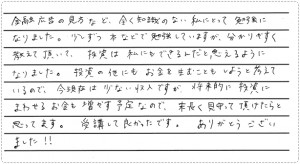 金融広告の見方など、全く知識のない私にとって勉強に
なりました。少しずつ本などで勉強していますが、分かりやすく
教えて頂いて、投資は私にもできるんだと思えるように
なりました。投資の他にもお金を生むこともしようと考えて
いるので、今現在は少ない収入ですが、将来的に投資に
まわせるお金も増やす予定なので、末長く見守って頂けたらと
思ってます。受講して良かったです。ありがとうござい
ました!!